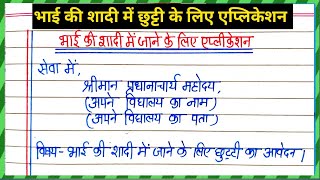 भाई की शादी में छुट्टी के लिए एप्लिकेशन
भाई की शादी में जाने के लिए एप्लीकेशन
सेवा में,
श्रीमान प्रधानाचार्य महोदय,
(अपने विद्यालय का नाम)
(अपने विद्यालय का पता)
विषय- भाई की शादी में जाने के लिए छुट्टी का आवेदन।